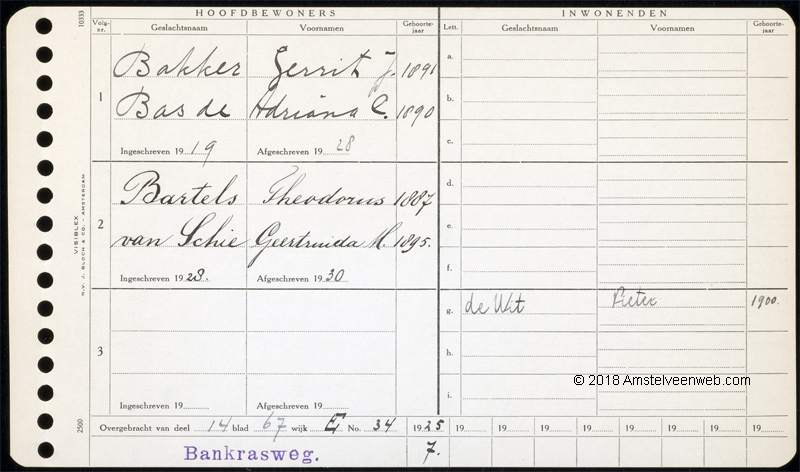 HOOFDBEWONERS
Volg-nr. Geslachtsnaam Voornamen Geboorte-jaar
1
Bakker Gerrit J. 1891
Bas de Adriana C. 1890
Ingeschreven 1919 Afgeschreven 1928
2
Bartels Theodorus 1887
van Schie Geertruida M. 1895.
Ingeschreven 1928. Afgeschreven 1930
3
Ingeschreven 19 Afgeschreven 19
INWONENDEN
Lett. Geslachtsnaam Voornamen Geboorte-jaar
a.
b.
c.
d.
e.
f.
g. de Wit Pieter 1900.
h.
i.
Overgebracht van deel 14 blad 67 wijk E No. 34 1925 19 19 19 19 19 19 19 19
Bankrasweg. 7.
10333
VISIBLEX
N.V. J. BLOCH & CO. - AMSTERDAM
2500
© 2018 Amstelveenweb.com